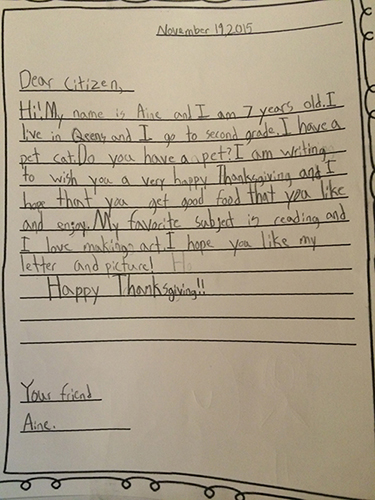 November 19,2015
Dear Citizen,
Hi! My name is Aine and I am 7 years old. I
live in Qeens and I go to second grade. I have a
pet cat. Do you have a pet? I am writing
to wish you a very happy Thanksgiving and I
hope that you get good food that you like
and enjoy. My favorite subject is reading and
I love making art. I hope you like my
letter and picture!
Happy Thanksgiving!!
Your friend
Aine.